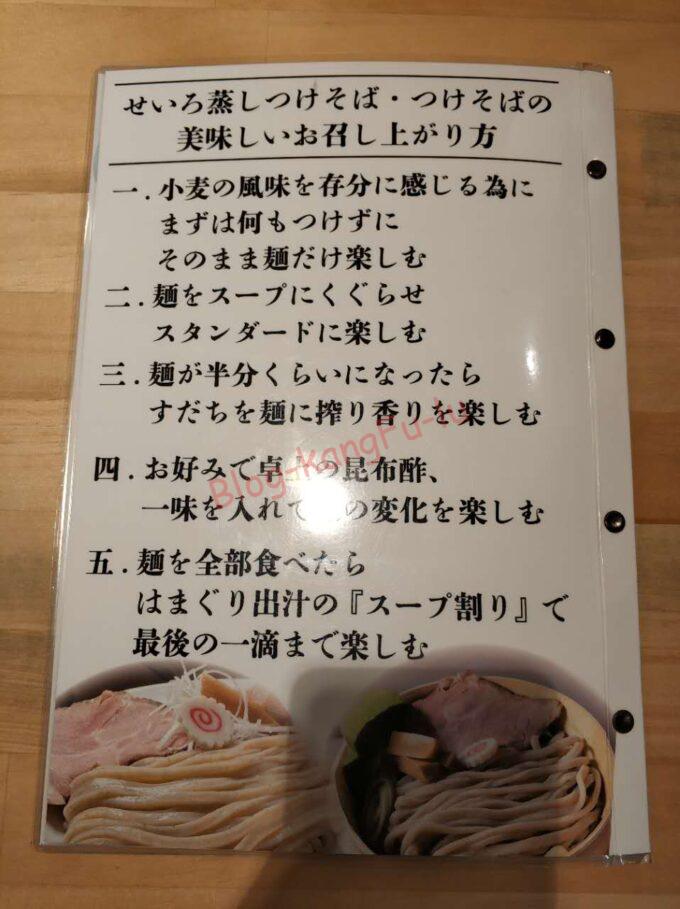 せいろ蒸しつけそば・つけそばの
美味しいお召し上がり方
一.小麦の風味を存分に感じる為に
まずは何もつけずに
そのまま麺だけ楽しむ
二.麺をスープにくぐらせ
スタンダードに楽しむ
三.麺が半分くらいになったら
すだちを麺に搾り香りを楽しむ
四.お好みで卓の昆布酢、
一味を入れての変化を楽しむ
五.麺を全部食べたら
はまぐり出汁の『スープ割り』で
最後の一滴まで楽しむ
Blog-KangFu-lu